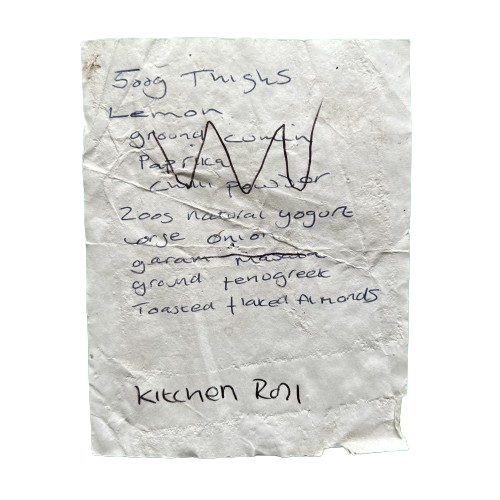 500g Thighs
Lemon
ground cumin
Paprika
Chilli powder
200g natural yogurt
large onion
garam masala
ground fenugreek
Toasted flaked Almonds
Kitchen Roll